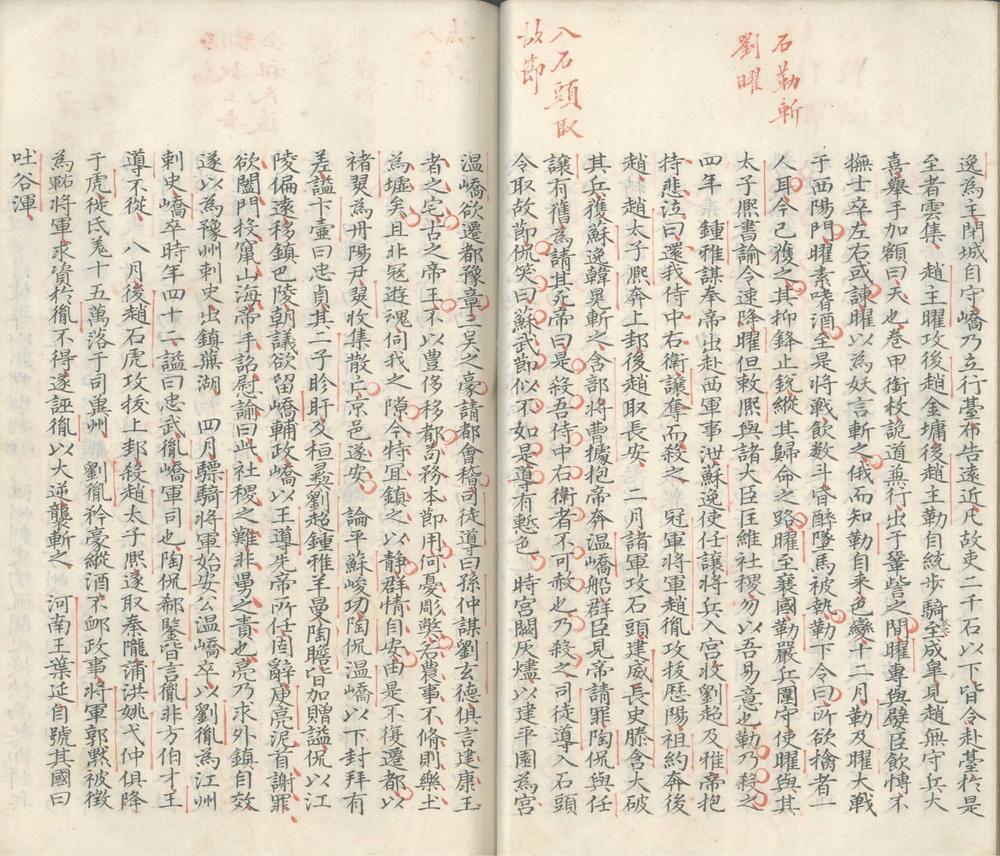 石勒斬
劉曜
入石頭取
故節
逸為主閉城自守嶠乃立行臺布告遠近凡故吏二千石以下皆令赴臺於是
至者雲集、趙主曜攻後趙金墉後趙主勒自統步騎至成皐見趙無守兵大
喜舉手加額曰天也卷甲銜枚詭道兼行出于鞏訾之間曜專與嬖臣飲博不
撫士卒左右或諫曜以為妖言斬之俄而知勒自来色變十二月勒及曜大戰
于西陽門曜素嗜酒至是將戰飲數斗昏醉墜馬被執勒下令曰所欲擒者一
人耳今已獲之其抑鋒止銳縱其歸命之路曜至襄國勒嚴兵圍守使曜與其
太子熙書諭令速降曜但敕熙與諸大臣匡維社稷勿以吾易意也勒乃殺之
四年 鍾雅謀奉帝出赴西軍事泄蘇逸使任讓將兵入宮收劉超及雅帝抱
持悲泣曰還我侍中右衛讓奪而殺之 冠軍將軍趙胤攻拔歷陽祖約奔後
趙 趙太子熙奔上邽後趙取長安 二月諸軍攻石頭建威長史滕含大破
其兵獲蘇逸韓晃斬之含部將曹據抱帝奔溫嶠船群臣見帝請罪陶侃與任
讓有舊為請其死帝曰是殺吾侍中右衛者不可赦也乃殺之司徒導入石頭
令取故節侃笑曰蘇武節似不如是導有慙色 時宮闕灰燼以建平園為宮
温嶠欲遷都豫章三吳之豪請都會稽司徒導曰孫仲謀劉玄德俱言建康王
者之宅古之帝王不以豊侈移都苟務本節用何憂彫弊若農事不脩則樂土
為墟矣且北冦遊魂伺我之隙今特宜鎮之以静群情自安由是不復遷都以
褚翜為丹陽尹翜收集散亡京邑遂安 論平蘇峻功陶侃温嶠以下封拜有
差謚卞壷曰忠貞其二子眕盱及桓彝劉超鍾雅羊曼陶瞻皆加贈謚侃以江
陵偏遠移鎮巴陵朝議欲留嶠輔政嶠以王導先帝所任固辭庾亮泥首謝罪
欲闔門投竄山海帝手詔慰諭曰此社稷之難非舅之責也亮乃求外鎮自效
遂以為豫州刺史出鎮蕪湖 四月驃騎將軍始安公温嶠卒以劉胤為江州
刺史嶠卒時年四十二謚曰忠武胤嶠軍司也陶侃郗鑒皆言胤非方伯才王
導不從 八月後趙石虎攻拔上邽殺趙太子熙遂取秦隴蒲洪姚弋仲俱降
于虎徙氐羌十五萬落于司冀州 劉胤矜豪縱酒不邺政事將軍郭默被徵
為右軍將軍求資於胤不得遂誣胤以大逆襲斬之 河南王葉延自號其國曰
吐谷渾